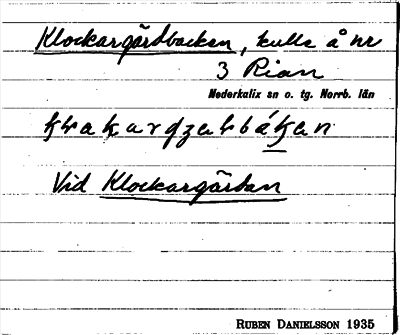 Klockargårdbacken, kulle å nr
3 Rian
Nederkalix sn o. tg. Norrb. län
Vid Klockargårdan
RUBEN DANIELSSON 1935